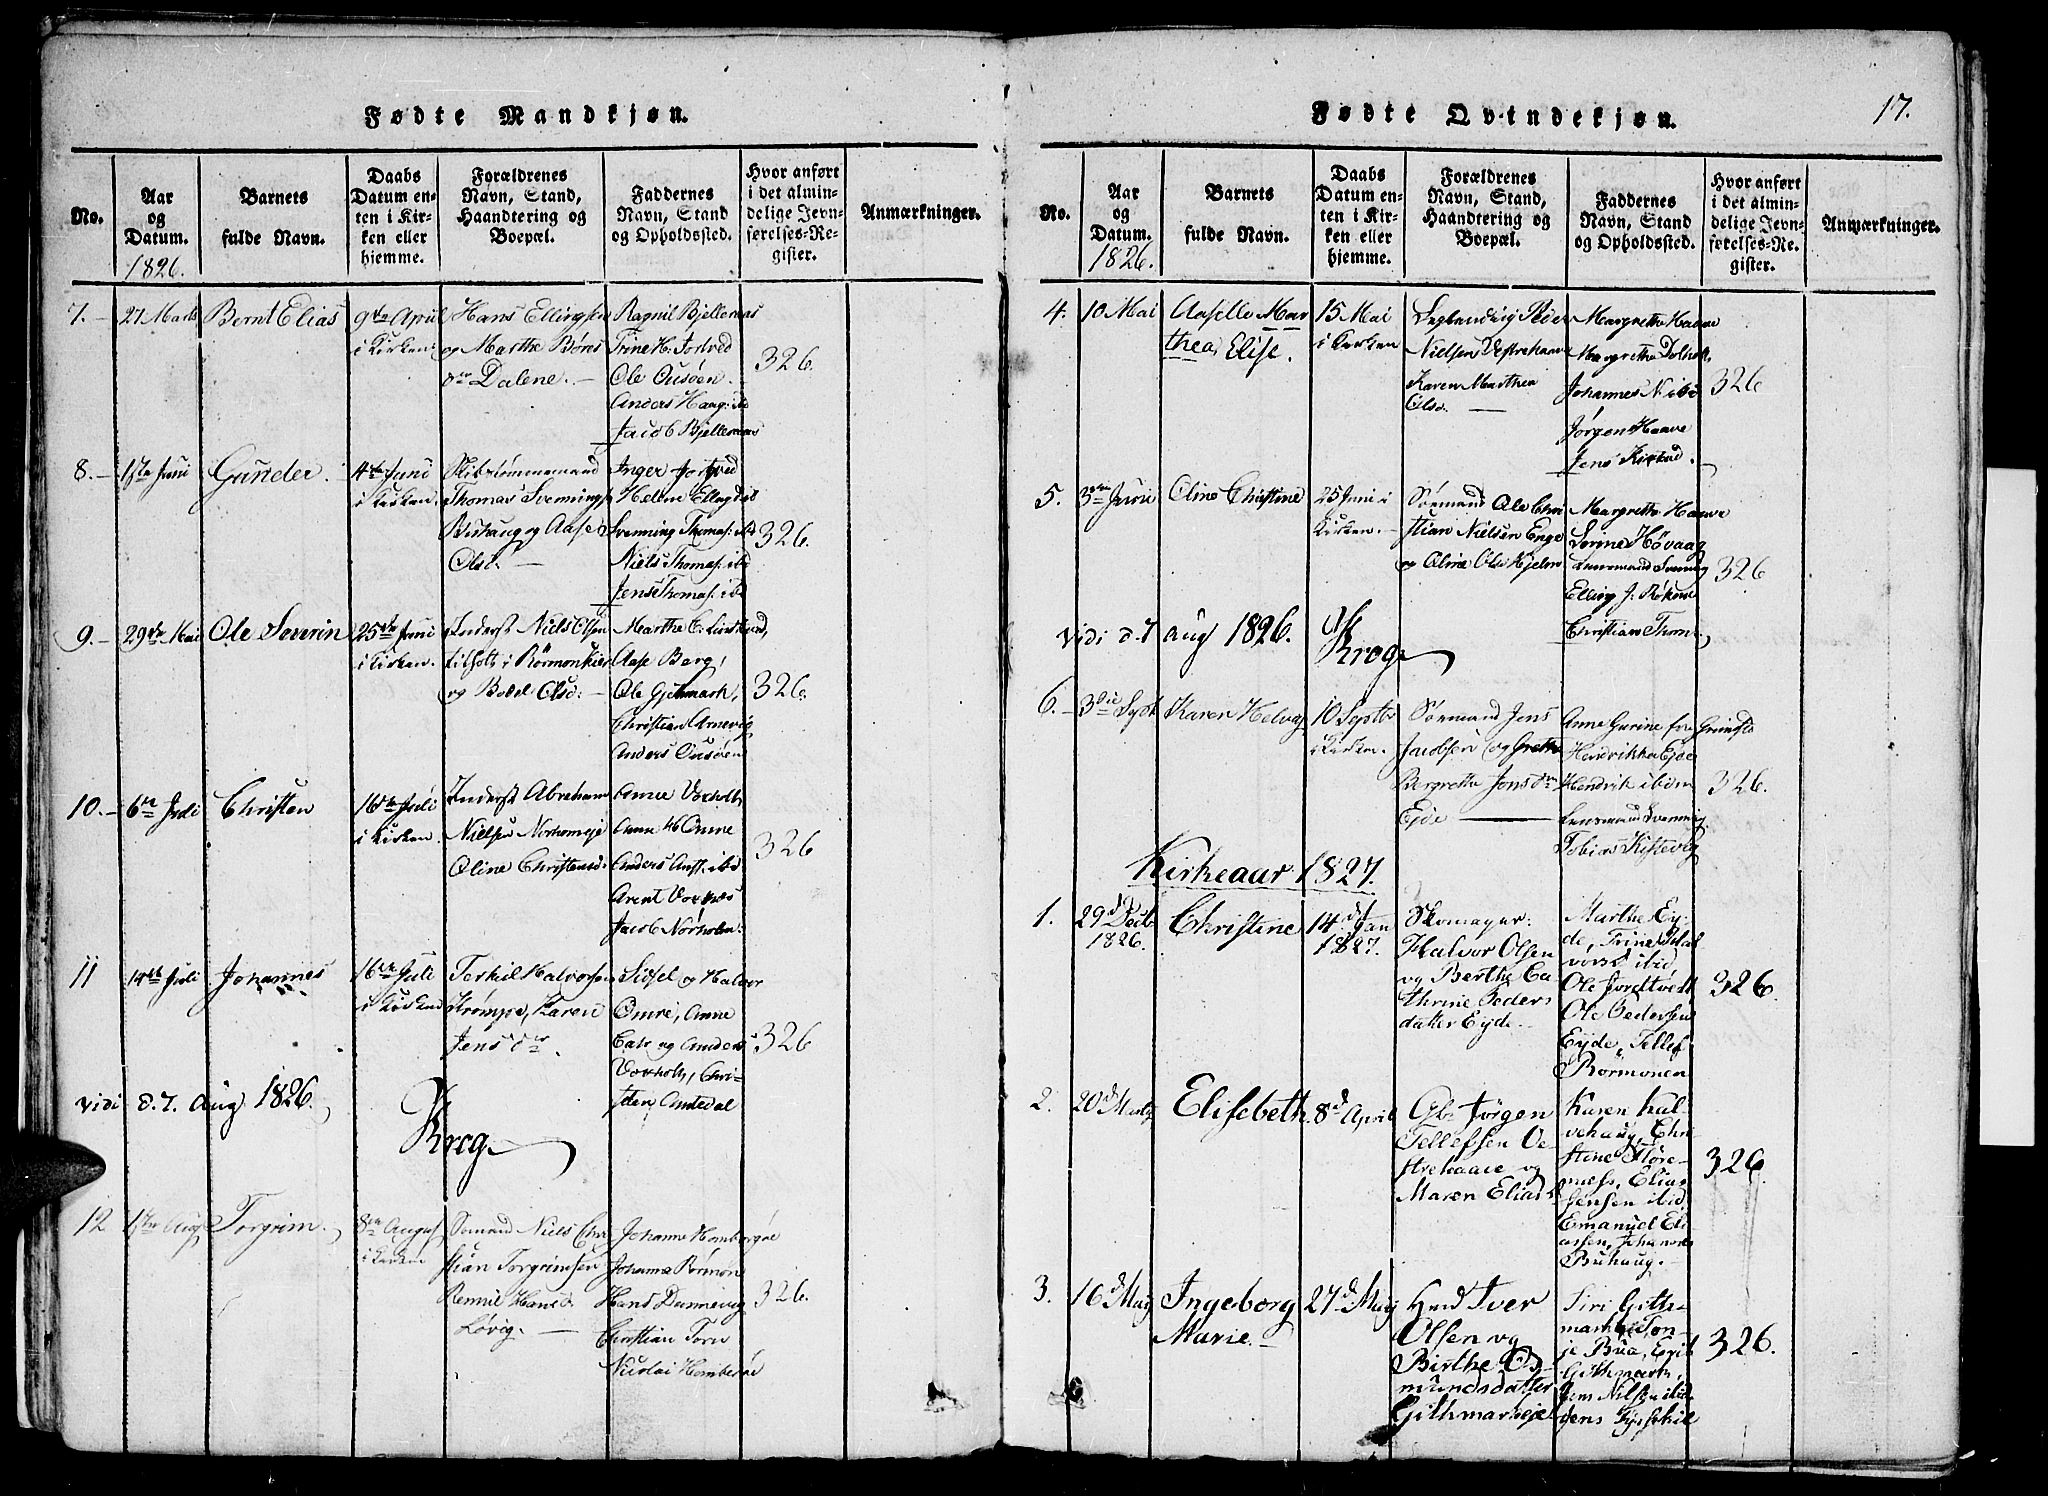 Fødte Mandkjøn.
No.
Aar og Datum.
1826.
Barnets fulde Navn.
Daabs Datum enten i Kirken eller hjemme.
Forældrenes Navn, Stand, Haandtering og Boepæl.
Faddernes Navn, Stand og Opholdssted.
Hvor anført i det almindelige Jevnførelses-Register.
Anmærkninger.
7.
27 Marts
Bernt Elias
9de April
i Kirken
Hans Ellingsen
og Marthe Børes
dtr Dalene.
Ragnil Bjellernes
Trine H. Jortved
Ole Ousøen
Anders Haag: ib
Jacob Bjellernes
326.
8.
1ste Juni
Gunder.
4de Juni
i Kirken.
Skibstømmermand
Thomas Svennings
og Aase
Olsd.
Inger Jortved
Hellen
Svenning Thomas: ibd
Niels Thomas: ibd
Jens Thomas: ibd
326.
9.
29de Mai
Ole Severin
25de Juni
i Kirken.
Inderst Niels Olsen
i Rørmonkier
og Bodel Olsd:
Marthe C:
Aase Berg,
Ole Gjetmark,
Christian Arnevig
Anders Ousøen
326.
10.
6te Juli
Christen
16de Juli
i Kirken.
Inderst Abraham
Nielsen
Oline Christensd:
Anne Voxholt
Anne Omre
Anders ibd
Arent Voxnes
Jacob Nørholm:
326
11
14de Juli
Johannes
16de Juli
i Kirken
Terkil Halvorsen
Strømpe, Karen
Jens dtr.
Sissel og Halvor
Omre, Anne
og Anders
Voxholt, Chri-
sten Amtedal
326
vidi d. 7. Aug 1826.
Krog
12
1ste Aug
Torgrim.
8de August
i Kirken
Sømand Niels Chri
stian Torgrimsen
Rennil Hansd.
Løvig.
Johanne Homborgøe
Johanna Rørmon
Hans Dannevig
Christian Torn
Nicolai Homborøe
326.
Fødte Qvindekjøn.
17.
No.
Aar og Datum.
1826.
Barnets fulde Navn.
Daabs Datum enten i Kirken eller hjemme.
Forældrenes Navn, Stand, Haandtering og Boepæl.
Faddernes Navn, Stand og Opholdssted.
Hvor anført i det almindelige Jevnførelses-Register.
Anmærkninger.
4.
10 Mai
Aaselle Mar
thea Elise.
15 Mai
i Kirken
Nielsen Vestrehaave
Karen Marthea
Olsd.
Margrethe Haave
Margrethe Dolholt
Johannes N ibd
Jørgen Haave
Jens
326
5.
3die Juni
Oline Christine
25 Juni i
Kirken.
Sømand Ole Chri
stian Nielsen Enge
og Oline Olsd
Margrethe Haave
Sørine Høvaag
Lensmand Svennig
Elling J.
Christian Thom
326
vidi d. 7 Aug 1826.
Krog
6.
3die Sept
Karen Helvig
10 Septbr
i Kirken.
Sømand Jens
Jacobsen og Grethe
Bergrethe Jens dtr
Ejde
Anne Gurine fra Grimst
Hendrikka Ejde
Hendrik ibidem
Lensmand Svennig
Tobias Kistevig
326.
Kirkeaar 1827.
1.
29d Decb
1826.
Christine
14d Jan
1827.
Skomager:
Halvor Olsen
og Berthe Ca
thrine Peders
datter Eyde.
Marthe Ey-
de, Trine Hal
vorsd ibid
Ole Jordtvedt
Ole Pedersen
Eyde, Tellef
Rormonen
326.
2.
20d Marts
Elisebeth.
8d April
Gb: Jørgen
Tellefsen Oe-
strehaave og
Maren Elias d
Karen Kal-
vehaug, Chri-
stine Støre-
næss, Elias
Jensen ibid
Emanuel Eli-
assen, Johannes
Buhaug.
326.
3.
16d Maij
Ingeborg
Marie.
27d Maij
Hmd Iver
Olsen og
Birthe Os-
mundsdatter
Githmarkeje
Siri Gith-
mark, Ton-
je Bua,
Githmark,
Jens Nilsen ibid
Jens
326.